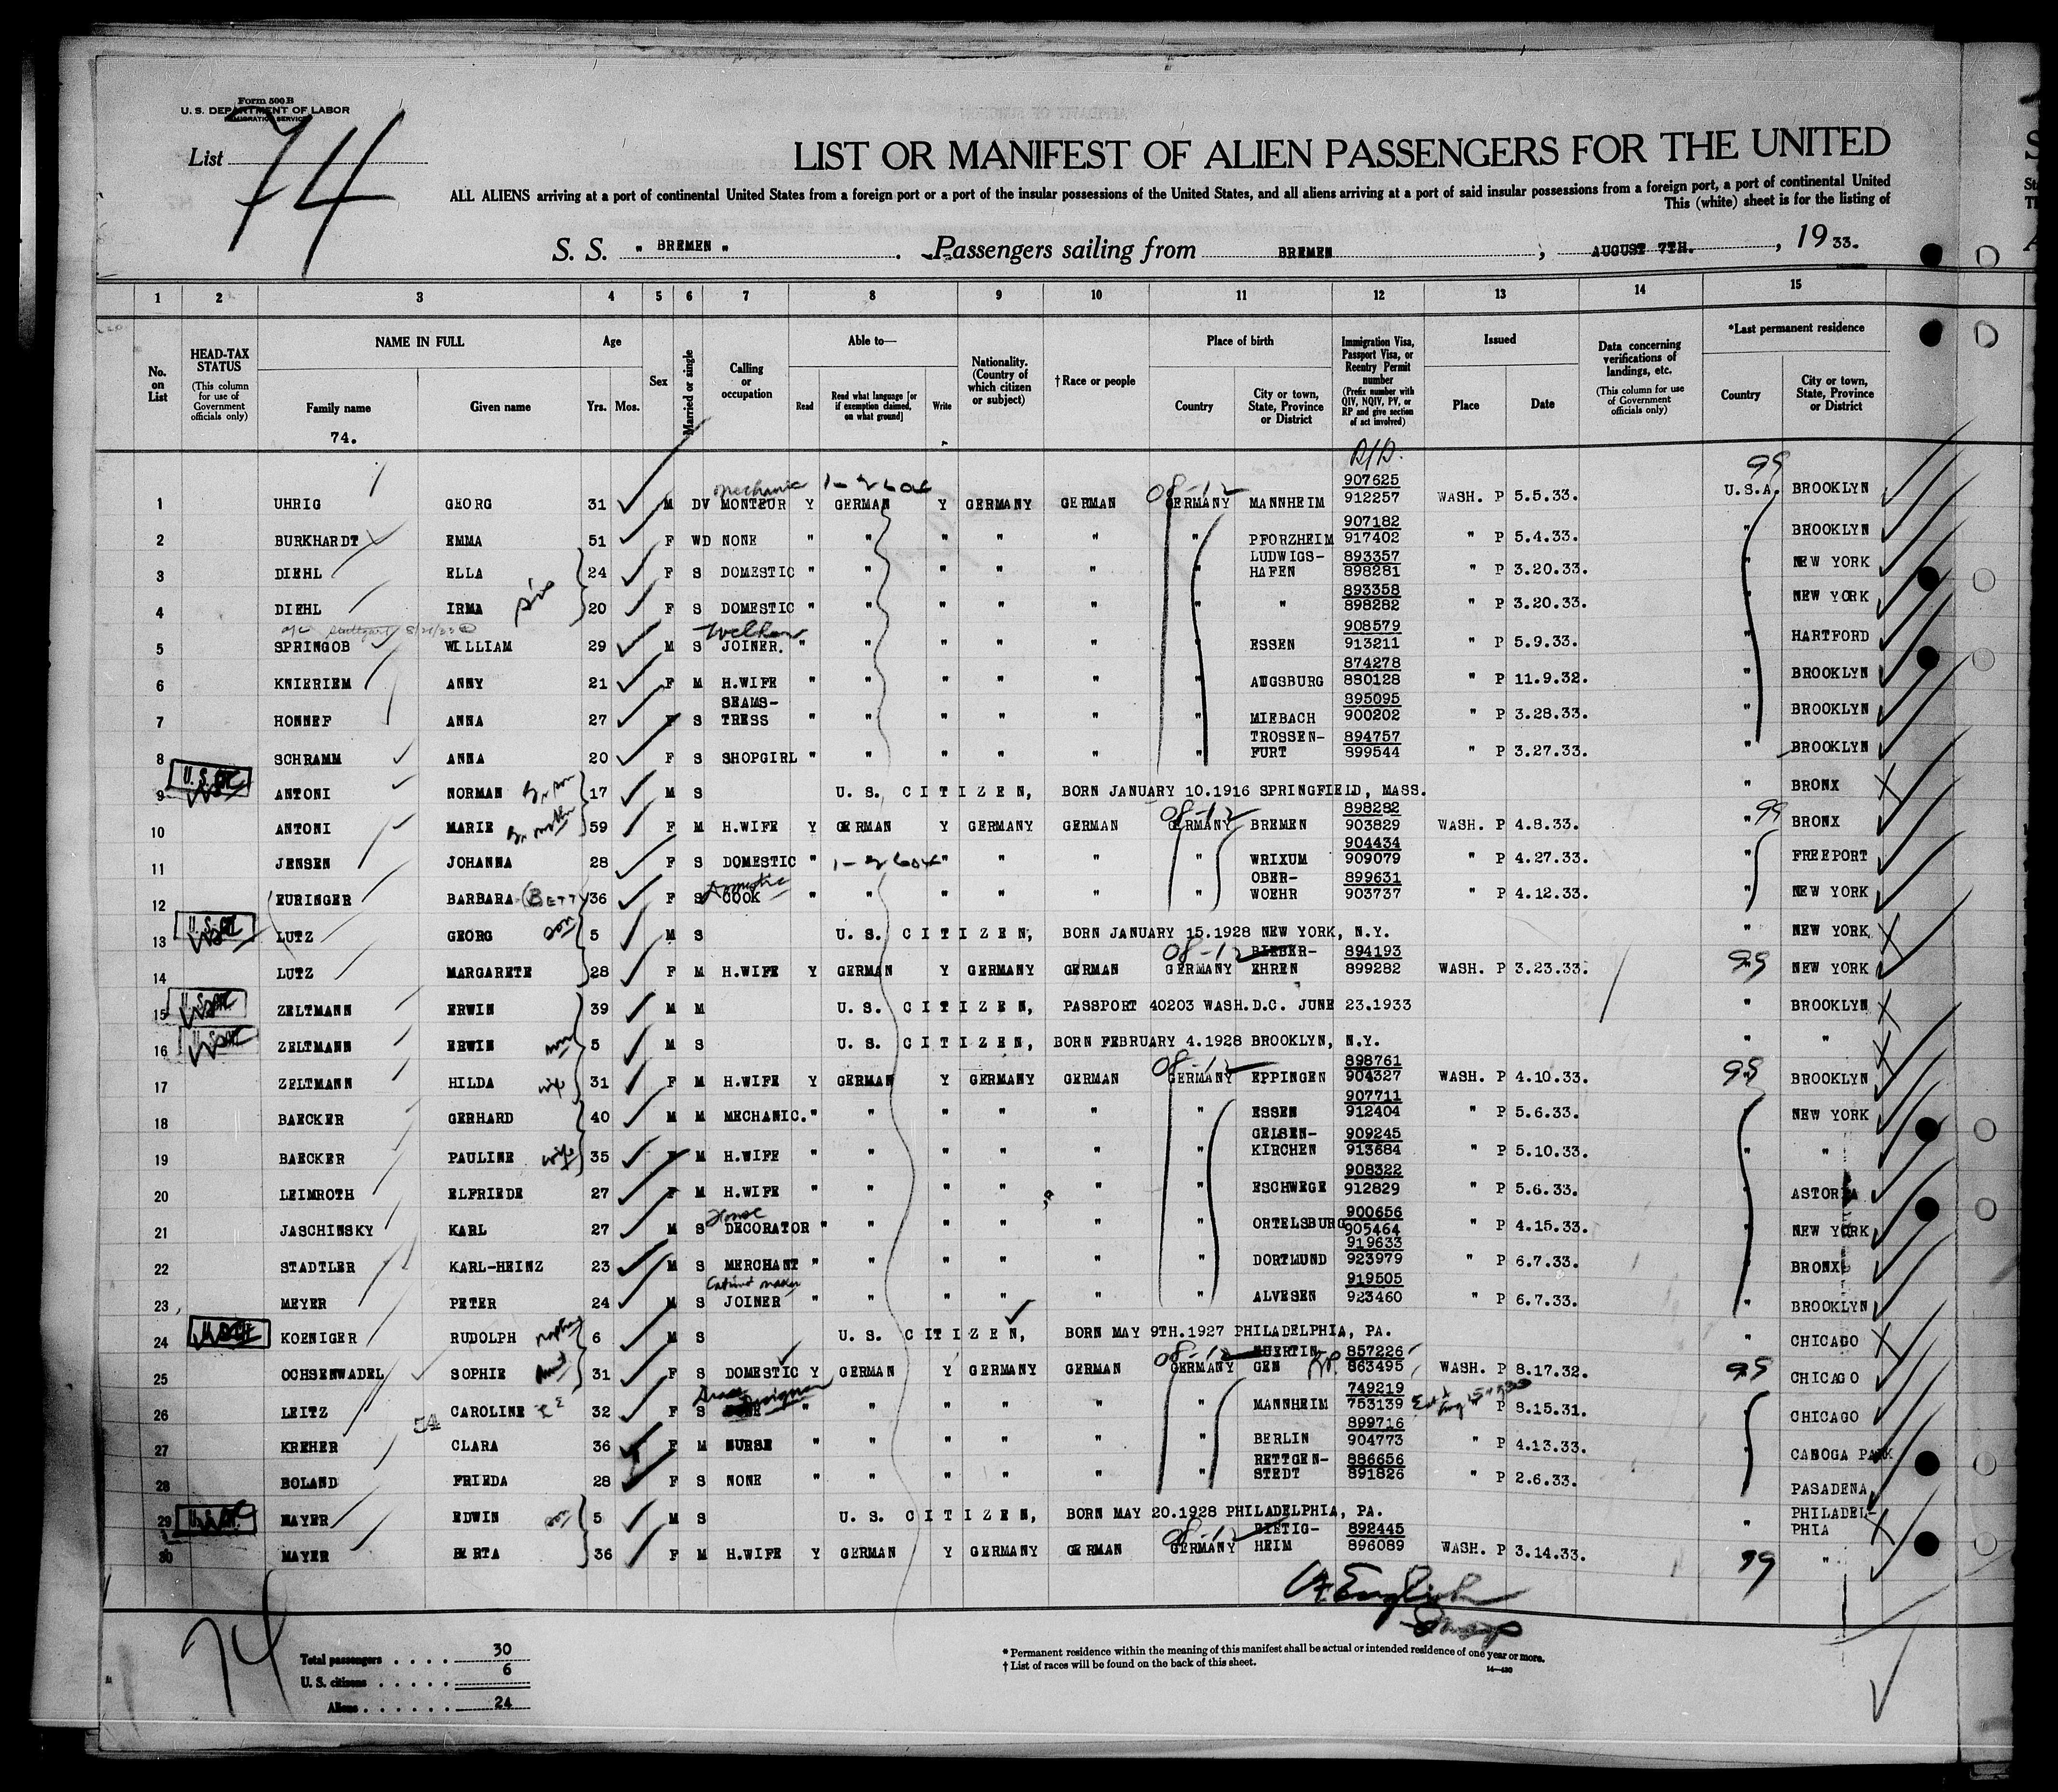 Form 500 B
U. S. DEPARTMENT OF LABOR
IMMIGRATION SERVICE
List 74
LIST OR MANIFEST OF ALIEN PASSENGERS FOR THE UNITED
ALL ALIENS arriving at a port of continental United States from a foreign port or a port of the insular possessions of the United States, and all aliens arriving at a port of said insular possessions from a foreign port, a port of continental United
This (white) sheet is for the listing of
S. S. " BREMEN " . Passengers sailing from BREMEN , AUGUST 7TH. , 19 33.
1 2 3 4 5 6 7 8 9 10 11 12 13 14 15
No. on List
HEAD-TAX STATUS (This column for use of Government officials only)
NAME IN FULL Family name Given name
74.
Age Yrs. Mos.
Sex
Married or single
Calling or occupation
Able to— Read Read what language [or if exemption claimed, on what ground] Write
Nationality. (Country of which citizen or subject)
† Race or people
Place of birth Country City or town, State, Province or District
Immigration Visa, Passport Visa, or Reentry Permit number (Prefix number with QIV, NQIV, PV, or RP and give section of act involved)
Issued Place Date
Data concerning verifications of landings, etc. (This column for use of Government officials only)
*Last permanent residence Country City or town, State, Province or District
1 UHRIG GEORG 31 M DV mechanic MONTEUR Y GERMAN Y GERMANY GERMAN 08-12 GERMANY MANNHEIM 907625 912257 WASH. P 5.5.33. 99 U.S.A. BROOKLYN
2 BURKHARDT EMMA 51 F WD NONE " " " " " " PFORZHEIM 907182 917402 " P 5.4.33. " BROOKLYN
3 DIEHL ELLA 24 F S DOMESTIC " " " " " " LUDWIGS-HAFEN 893357 898281 " P 3.20.33. " NEW YORK
4 DIEHL IRMA sis 20 F S DOMESTIC " " " " " " " 893358 898282 " P 3.20.33. " NEW YORK
5 SPRINGOB WILLIAM 29 M S JOINER. " " " " " " ESSEN 908579 913211 " P 5.9.33. " HARTFORD
6 KNIERIEM ANNY 21 F M H.WIFE " " " " " " AUGSBURG 874278 880128 " P 11.9.32. " BROOKLYN
7 HONNEF ANNA 27 F S SEAMS-TRESS " " " " " " MIEBACH 895095 900202 " P 3.28.33. " BROOKLYN
8 SCHRAMM ANNA 20 F S SHOPGIRL " " " " " " TROSSEN-FURT 894757 899544 " P 3.27.33. " BROOKLYN
9 ANTONI NORMAN 17 M S U. S. CITIZEN, BORN JANUARY 10.1916 SPRINGFIELD, MASS. " BRONX
10 ANTONI MARIE 59 F M H.WIFE Y GERMAN Y GERMANY GERMAN 08-12 GERMANY BREMEN 898282 903829 WASH. P 4.8.33. 99 " BRONX
11 JENSEN JOHANNA 28 F S DOMESTIC " " " " " WRIXUM 904434 909079 " P 4.27.33. " FREEPORT
12 EURINGER BARBARA (BETTY) 36 F S Domestic COOK " " " " " " OBER-WOEHR 899631 903737 " P 4.12.33. " NEW YORK
13 LUTZ GEORG son 5 M S U. S. CITIZEN, BORN JANUARY 15.1928 NEW YORK, N.Y. " NEW YORK
14 LUTZ MARGARETE 28 F M H.WIFE Y GERMAN Y GERMANY GERMAN 08-12 GERMANY BIEBER-EHREN 894193 899282 WASH. P 3.23.33. 99 NEW YORK
15 ZELTMANN ERWIN 39 M M U. S. CITIZEN, PASSPORT 40203 WASH.D.C. JUNE 23.1933 " BROOKLYN
16 ZELTMANN ERWIN son 5 M S U. S. CITIZEN, BORN FEBRUARY 4.1928 BROOKLYN, N.Y. " "
17 ZELTMANN HILDA wife 31 F M H.WIFE Y GERMAN Y GERMANY GERMAN 08-12 GERMANY EPPINGEN 898761 904327 WASH. P 4.10.33. 99 BROOKLYN
18 BAECKER GERHARD 40 M M MECHANIC. " " " " " " ESSEN 907711 912404 " P 5.6.33. " NEW YORK
19 BAECKER PAULINE wife 35 F M H.WIFE " " " " " " GELSEN-KIRCHEN 909245 913684 " P 5.10.33. " "
20 LEIMROTH ELFRIEDE 27 F M H.WIFE " " " " " " ESCHWEGE 908322 912829 " P 5.6.33. " ASTORIA
21 JASCHINSKY KARL 27 M S House DECORATOR " " " " " " ORTELSBURG 900656 905464 " P 4.15.33. " NEW YORK
22 STADTLER KARL-HEINZ 23 M S MERCHANT " " " " " " DORTMUND 919633 923979 " P 6.7.33. " BRONX
23 MEYER PETER 24 M S Cabinet maker JOINER " " " " " " ALVESEN 919505 923460 " P 6.7.33. " BROOKLYN
24 KOENIGER RUDOLPH nephew 6 M S U. S. CITIZEN, BORN MAY 9TH.1927 PHILADELPHIA, PA. " CHICAGO
25 OCHSENWADEL SOPHIE Aunt 31 F S DOMESTIC Y GERMAN Y GERMANY GERMAN 08-12 GERMANY HUERTIN-GEN 857226 863495 WASH. P 8.17.32. 99 CHICAGO
26 LEITZ CAROLINE 32 F S Dress Designer " " " " " " MANNHEIM 749219 753139 P 8.15.31. " CHICAGO
27 KREHER 54 CLARA 36 F M NURSE " " " " " " BERLIN 899716 904773 " P 4.13.33. " CANOGA PARK
28 BOLAND FRIEDA 28 F S NONE " " " " " " RETTGEN-STEDT 886656 891826 " P 2.6.33. " PASADENA
29 MAYER EDWIN son 5 M S U. S. CITIZEN, BORN MAY 20.1928 PHILADELPHIA, PA. " PHILADEL-PHIA
30 MAYER BERTA 36 F M H.WIFE Y GERMAN Y GERMANY GERMAN 08-12 GERMANY BIETIG-HEIM 892445 896089 WASH. P 3.14.33. 99 "
74
Total passengers . . . . 30
U. S. citizens . . . . . 6
Aliens . . . . . . 24
* Permanent residence within the meaning of this manifest shall be actual or intended residence of one year or more.
† List of races will be found on the back of this sheet.
14—430